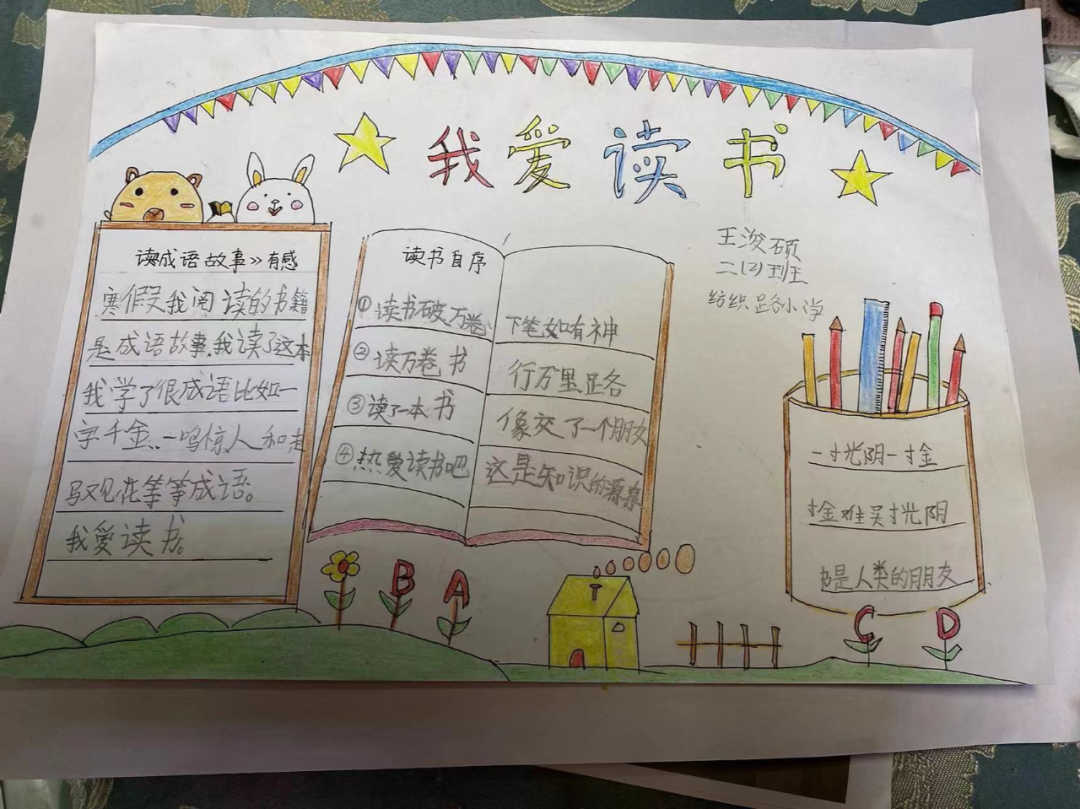 我爱读书
王浚硕
二(2)班
纺织路小学
读成语故事》有感
寒假我阅读的书籍
是成语故事.我读了这本
我学了很成语比如一
字千金..一鸣惊人和走
马观花等等成语。
我爱读书。
读书自序
①读书破万卷 下笔如有神
②读万卷书 行万里路
③读了一本书 像交了一个朋友
④热爱读书吧 这是知识的源泉
一寸光阴一寸金
寸金难买寸光阴
书是人类的朋友
B
A
C
D